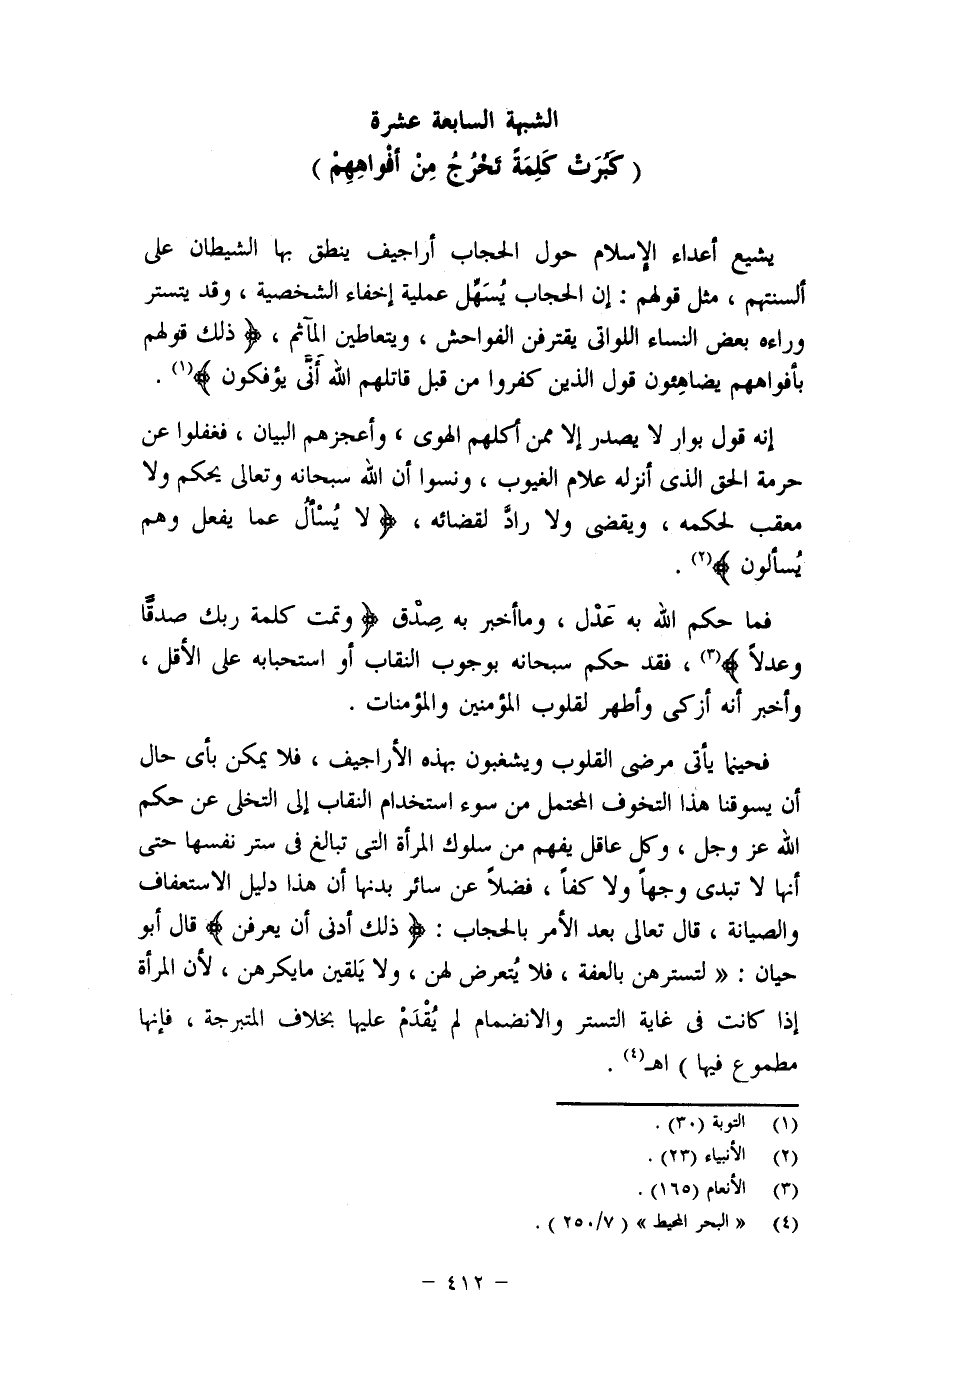 الشبهة السابعة عشرة
( كَبُرَتْ كَلِمَةً تَخْرُجُ مِنْ أَفْواهِهِمْ )
يشيع أعداء الإسلام حول الحجاب أراجيف ينطق بها الشيطان على
ألسنتهم ، مثل قولهم : إن الحجاب يُسَهِّل عملية إخفاء الشخصية ، وقد يتستر
وراءه بعض النساء اللواتى يقترفن الفواحش ، ويتعاطين المآثم ، ﴿ ذلك قولهم
بأفواههم يضاهِئون قول الذين كفروا من قبل قاتلهم الله أَنَّى يؤفكون ﴾(١) .
إنه قول بوار لا يصدر إلا ممن أكلهم الهوى ، وأعجزهم البيان ، فغفلوا عن
حرمة الحق الذى أنزله علام الغيوب ، ونسوا أن الله سبحانه وتعالى يحكم ولا
معقب لحكمه ، ويقضى ولا رادَّ لقضائه ، ﴿ لا يُسْأَلُ عما يفعل وهم
يُسألون ﴾(٢) .
فما حكم الله به عَدْل ، وماأخبر به صِدْق ﴿ وتمت كلمة ربك صدقًا
وعدلاً ﴾(٣) ، فقد حكم سبحانه بوجوب النقاب أو استحبابه على الأقل ،
وأخبر أنه أزكى وأطهر لقلوب المؤمنين والمؤمنات .
فحينما يأتى مرضى القلوب ويشغبون بهذه الأراجيف ، فلا يمكن بأى حال
أن يسوقنا هذا التخوف المحتمل من سوء استخدام النقاب إلى التخلى عن حكم
الله عز وجل ، وكل عاقل يفهم من سلوك المرأة التى تبالغ فى ستر نفسها حتى
أنها لا تبدى وجهاً ولا كفاً ، فضلاً عن سائر بدنها أن هذا دليل الاستعفاف
والصيانة ، قال تعالى بعد الأمر بالحجاب : ﴿ ذلك أدنى أن يعرفن ﴾ قال أبو
حيان : « لتسترهن بالعفة ، فلا يُتعرض لهن ، ولا يَلقين مايكرهن ، لأن المرأة
إذا كانت فى غاية التستر والانضمام لم يُقْدَمْ عليها بخلاف المتبرجة ، فإنها
مطموع فيها ) اهـ(٤) .
(١) التوبة (٣٠) .
(٢) الأنبياء (٢٣) .
(٣) الأنعام (١٦٥) .
(٤) « البحر المحيط » ( ٢٥٠/٧ ) .
- ٤١٢ -